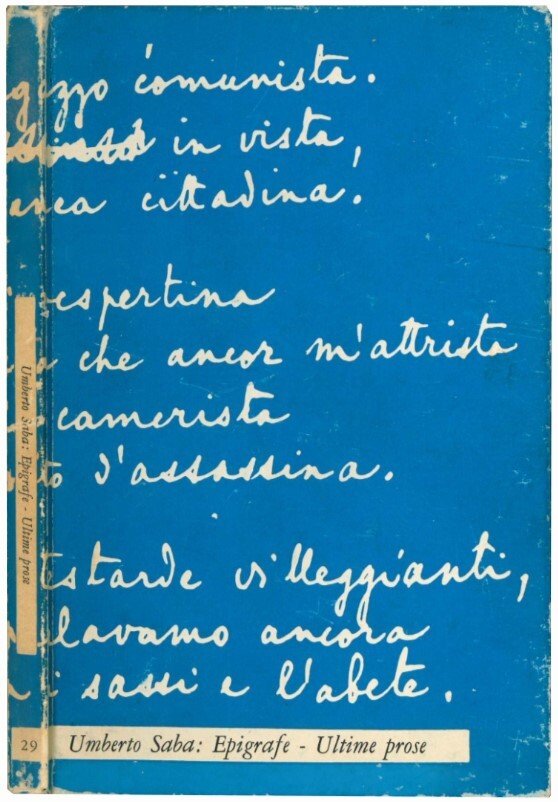 gazzo comunista.
in vista,
anca cittadina.
vespertina
che ancor m'attrista
camerista
to d'assassina.
testarde villeggianti,
lavamo ancora
i sassi e l'abete.
Umberto Saba: Epigrafe - Ultime prose
29
Umberto Saba: Epigrafe - Ultime prose